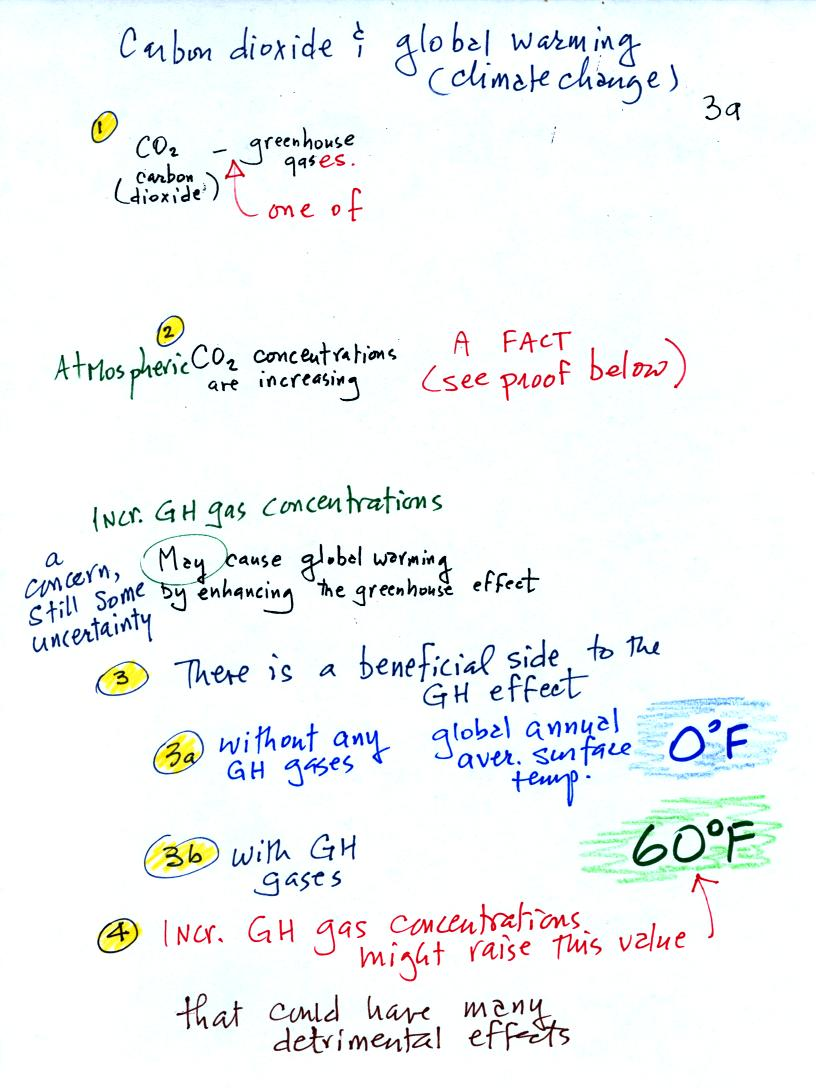 Carbon dioxide & global warming
(climate change)
3a
1
CO₂ – greenhouse
gases.
(carbon
dioxide)
one of
2
Atmospheric CO₂ concentrations
are increasing
A FACT
(see proof below)
Incr. GH gas concentrations
a
concern,
still some
uncertainty
May cause global warming
by enhancing the greenhouse effect
3 There is a beneficial side to the
GH effect
3a without any
GH gases
global annual
aver. surface
temp.
0°F
3b with GH
gases
60°F
4 Incr. GH gas concentrations
might raise this value
that could have many
detrimental effects